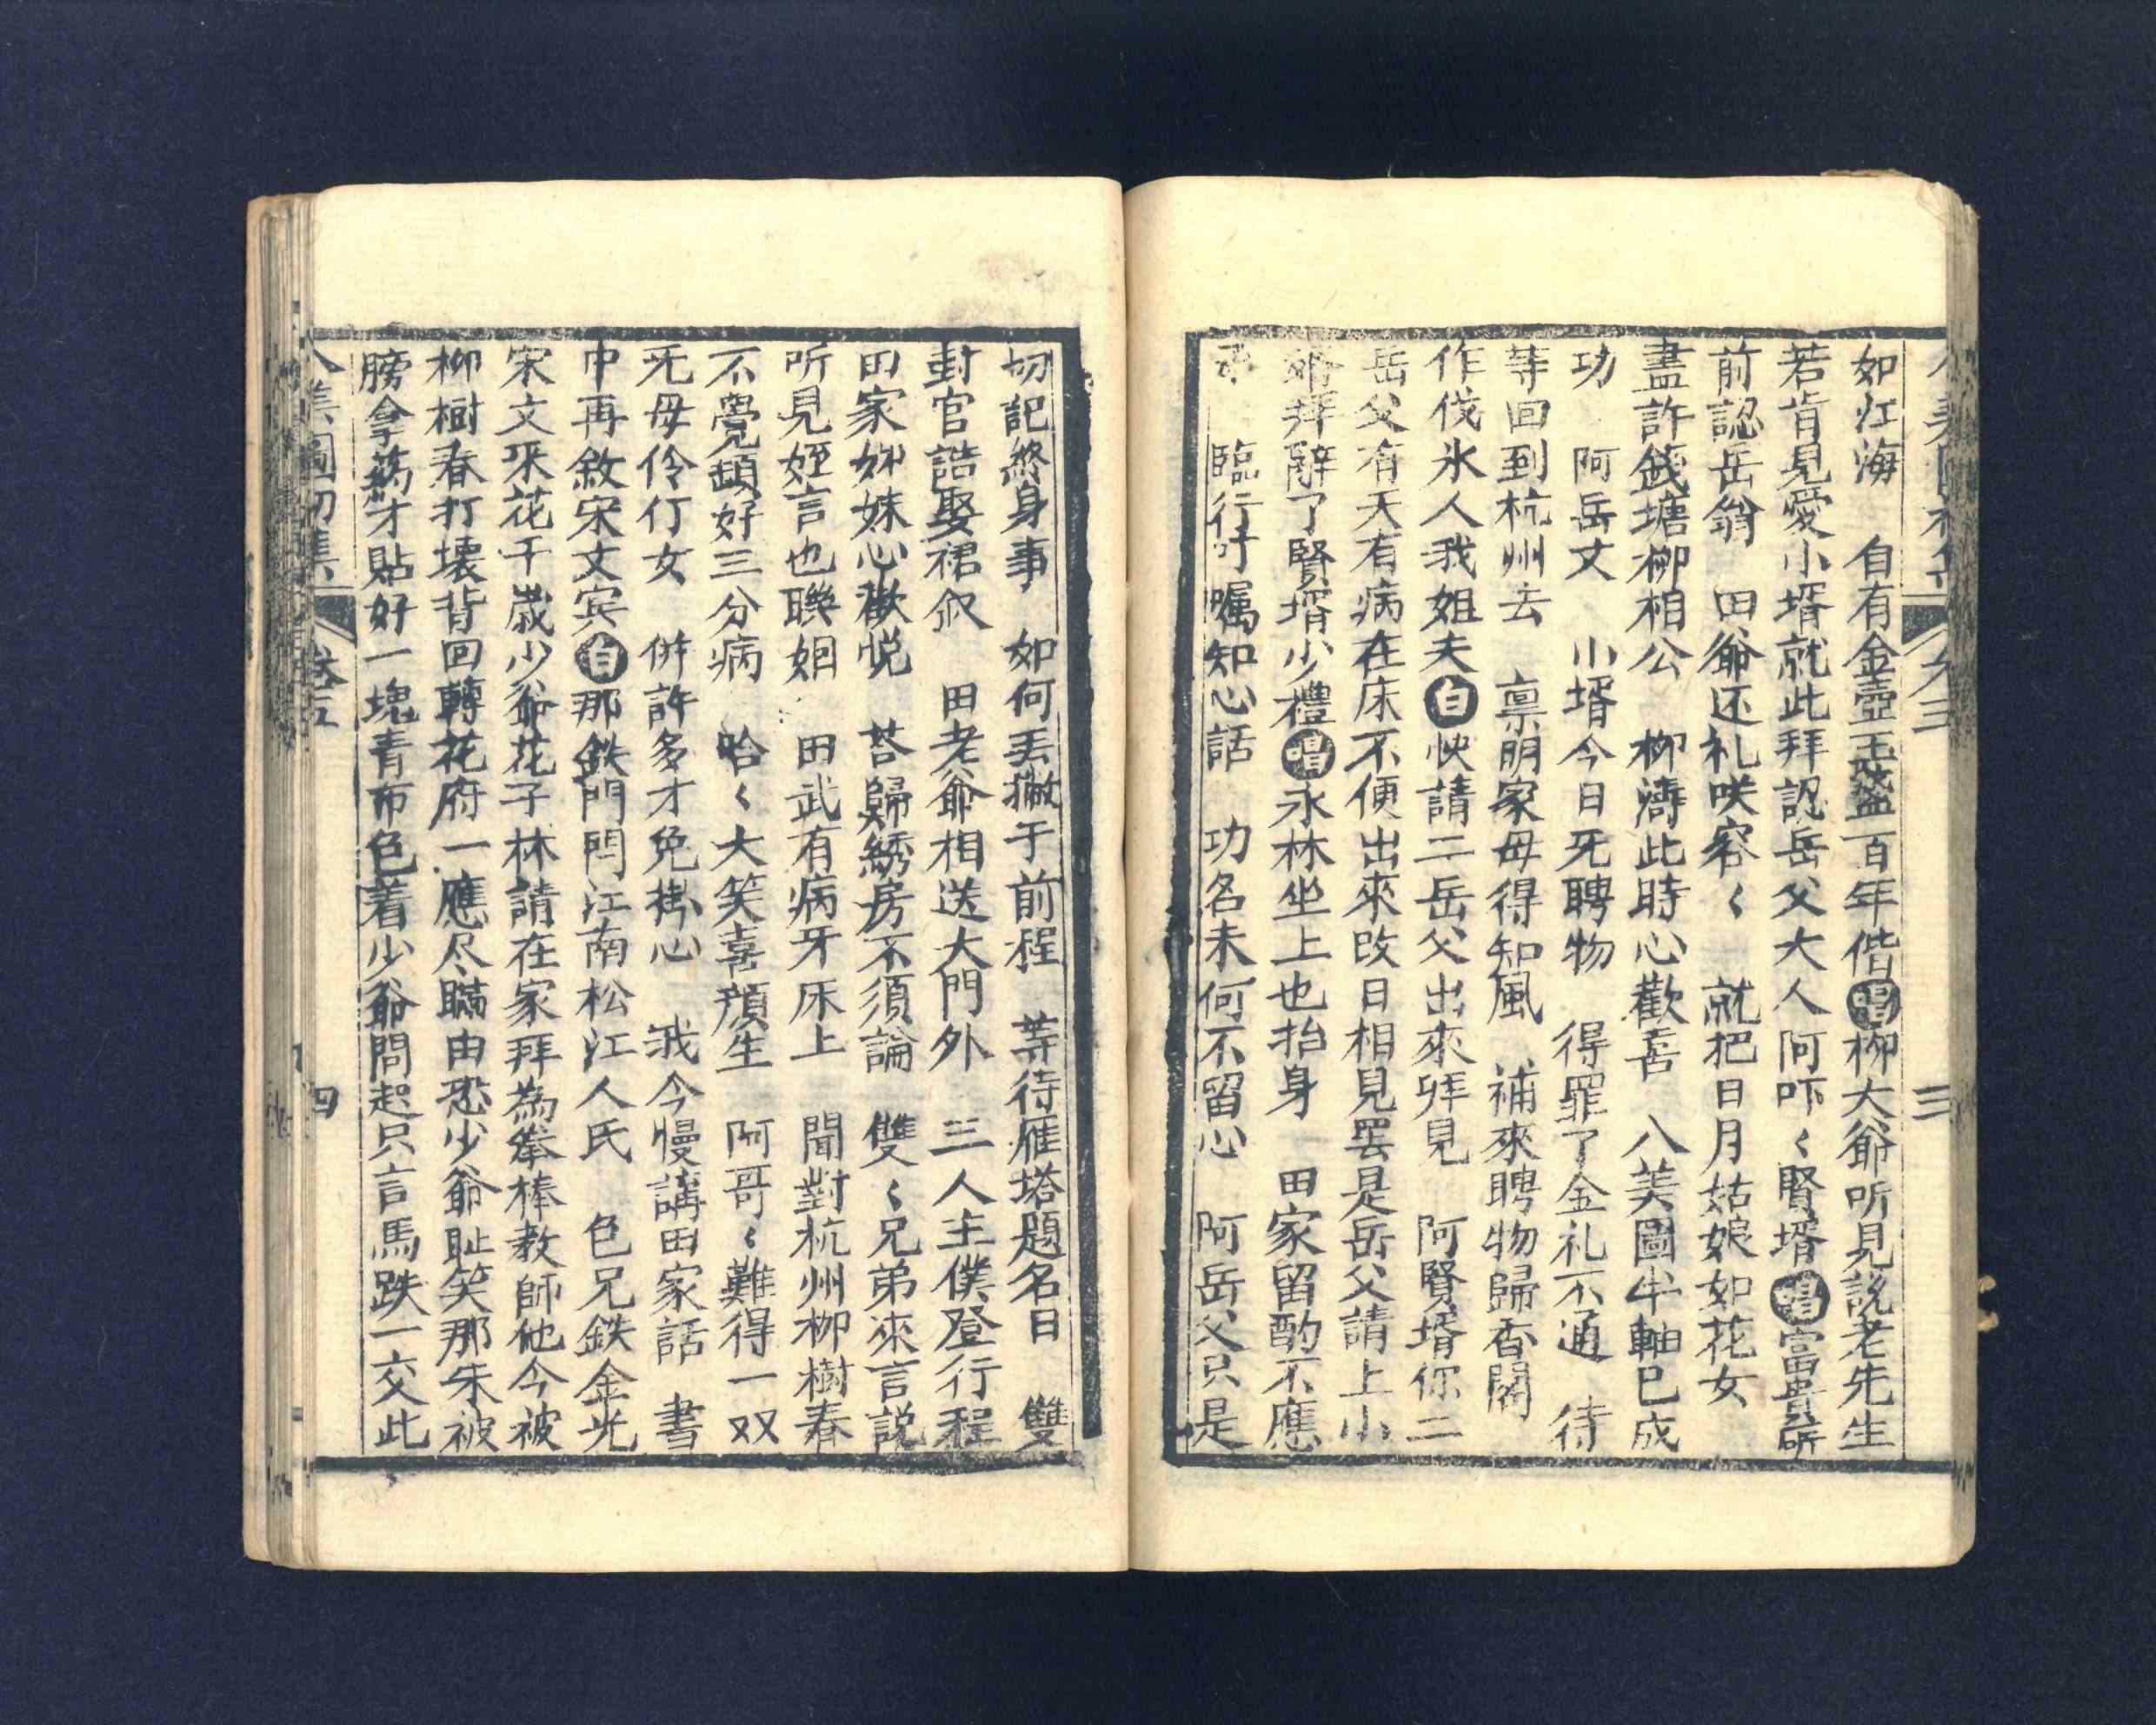 如江海　自有金壺玉盞百年偕唱柳大爺听見説老先生
若肯見愛小壻就此拜認岳父大人阿吓〻賢壻唱富貴
前認岳翁　田爺还礼咲容〻　就把日月姑娘如花女
盡許錢塘柳相公　柳濤此時心歡喜　八美圖半軸已成
功　阿岳丈　小壻今日无聘物　得罪了金礼不通　待
等回到杭州去　禀明家毋得知風　補來聘物歸香閣
作伐氷人我姐夫白快請二岳父出來拜見　阿賢壻你二
岳父有天有病在床不便出來改日相見罢是岳父請上小
婿拜辭了賢壻少禮唱永林坐上也抬身　田家留酌不應
承　臨行吩嘱知心話　功名未何不留心　阿岳父只是
切記終身事　如何丢撇于前程　䓁待雁塔題名日　雙
封官誥娶裙釵　田老爺相送大門外　三人主僕登行程
田家姊妹心歡悦　荅歸綉房不須論　雙〻兄弟來言説
听見姪言也聯姻　田武有病牙床上　聞對杭州柳樹春
不覺顛好三分病　哈〻大笑喜顔生　阿哥〻難得一双
无毋伶仃女　併許多才免掛心　我今慢講田家話　書
中再敘宋文宾白那鉄門閂江南松江人氏　色兄鉄金光
宋文采花千歲少爺花子林請在家拜為拳棒教師他今被
柳樹春打壞背回轉花府一應尽瞞由恐少爺耻笑那朱被
膀拿藥才貼好一塊青布色着少爺問起只言馬跌一交此
八美圖初集　卷三　四